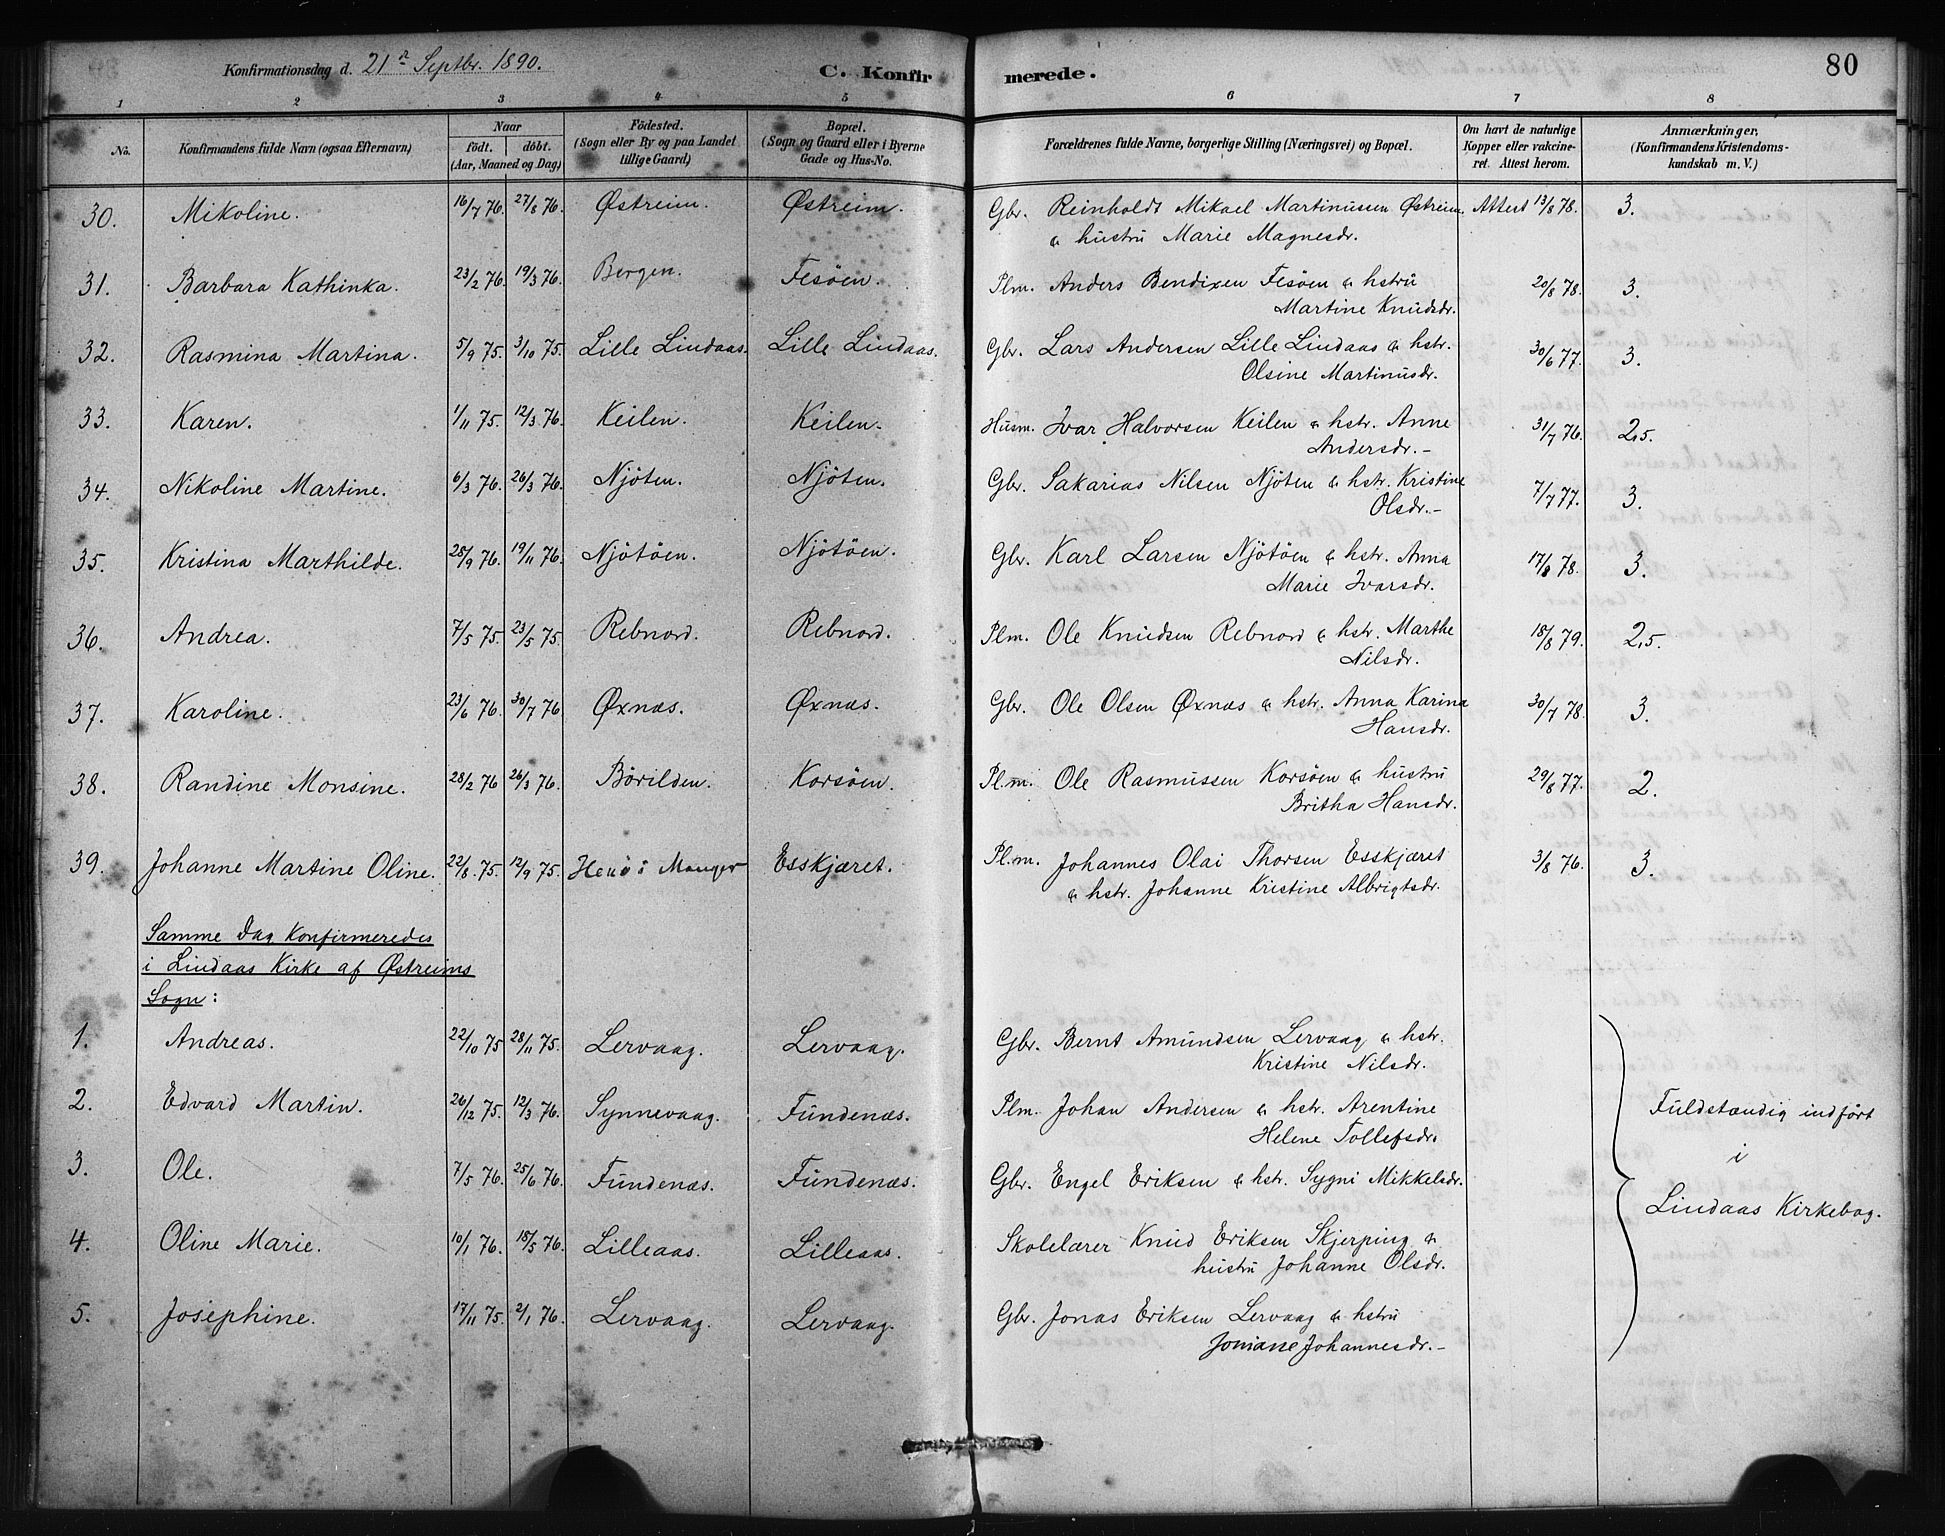 Konfirmationsdag d. 21de Septbr. 1890. C. Konfirmerede. 80
1 2 3 4 5 6 7 8
No. Konfirmandens fulde Navn (ogsaa Efternavn) Naar födt. döbt. (Aar, Maaned og Dag) Födested. (Sogn eller By og paa Landet tillige Gaard) Bopæl. (Sogn og Gaard eller i Byerne Gade og Hus-No. Forældrenes fulde Navne, borgerlige Stilling (Næringsvei) og Bopæl. Om havt de naturlige Kopper eller vakcineret. Attest herom. Anmærkninger, (Konfirmandens Kristendomskundskab m. V.)
30. Mikoline. 16/7 76. 27/8 76. Østreim. Østreim. Gbr. Reinholdt Mikael Martinussen Østreim. Attest 13/8 78. 3.
& hustru Marie Magnesdr.
31. Barbara Kathinka. 23/2 76. 19/3 76. Bergen. Fesöen. Plm. Anders Bendixen Fesöen & hstru 20/8 78. 3.
Martine Knudsdr.
32. Rasmina Martina. 5/9 75. 3/10 75. Lille Lindaas. Lille Lindaas. Gbr. Lars Andersen Lille Lindaas & hstr. 30/6 77. 3.
Olsine Martinusdr.
33. Karen. 1/11 75. 12/3 76. Keilen. Keilen. Husm. Ivar Halvorsen Keilen & hstr. Anne 31/7 76. 2,5.
Andersdr.-
34. Nikoline Martine. 6/3 76. 26/3 76. Njöten. Njöten. Gbr. Sakarias Nilsen Njöten & hstr. Kristine 7/7 77. 3.
Olsdr.-
35. Kristina Marthilde. 28/9 76. 19/11 76. Njötöen. Njötöen. Gbr. Karl Larsen Njötöen & hstr. Anna 17/8 78. 3.
Marie Ivarsdr.
36. Andrea. 7/5 75. 23/5 75. Rebnord. Rebnord. Plm. Ole Knudsen Rebnord & hstr. Marthe 18/8 79. 2,5.
Nilsdr.
37. Karoline. 23/6 76. 30/7 76 Øxnæs. Øxnæs. Gbr. Ole Olsen Øxnæs & hstr. Anna Karina 30/7 78. 3.
Hansdr.
38. Randine Monsine. 28/2 76 26/3 76. Börilden. Korsöen. Pl.m. Ole Rasmussen Korsöen & hustru 29/8 77. 2.
Britha Hansdr.
39. Johanne Martine Oline. 22/8 75. 12/9 75. Manger Esskjæret. Pl.m. Johannes Olai Thorsen Esskjæret 3/8 76. 3.
& hstr. Johanne Kristine Albrigtsdr.
Samme Dag konfirmeredes
i Lindaas Kirke af Østreims
Sogn:
1. Andreas. 22/10 75 28/11 75. Lervaag. Lervaag. Gbr. Bernt Amundsen Lervaag & hstr.
Kristine Nilsdr.
2. Edvard Martin. 26/12 75. 12/3 76. Synnevaag. Fundenæs. Plm. Johan Andersen & hstr. Arentine
Helene Tollefsdr.
Fuldstændig indført
i
Lindaas Kirkebog.
3. Ole. 7/5 76. 25/6 76. Fundenæs. Fundenæs. Gbr. Engel Eriksen & hstr. Sygni Mikkelsdr.
4. Oline Marie. 10/1 76. 15/5 76. Lilleaas. Lilleaas. Skolelærer Knud Eriksen Skjerping &
hustru Johanne Olsdr.
5. Josephine. 17/11 75. 2/1 76. Lervaag. Lervaag. Gbr. Jonas Eriksen Lervaag & hstru
Johannesdr.-